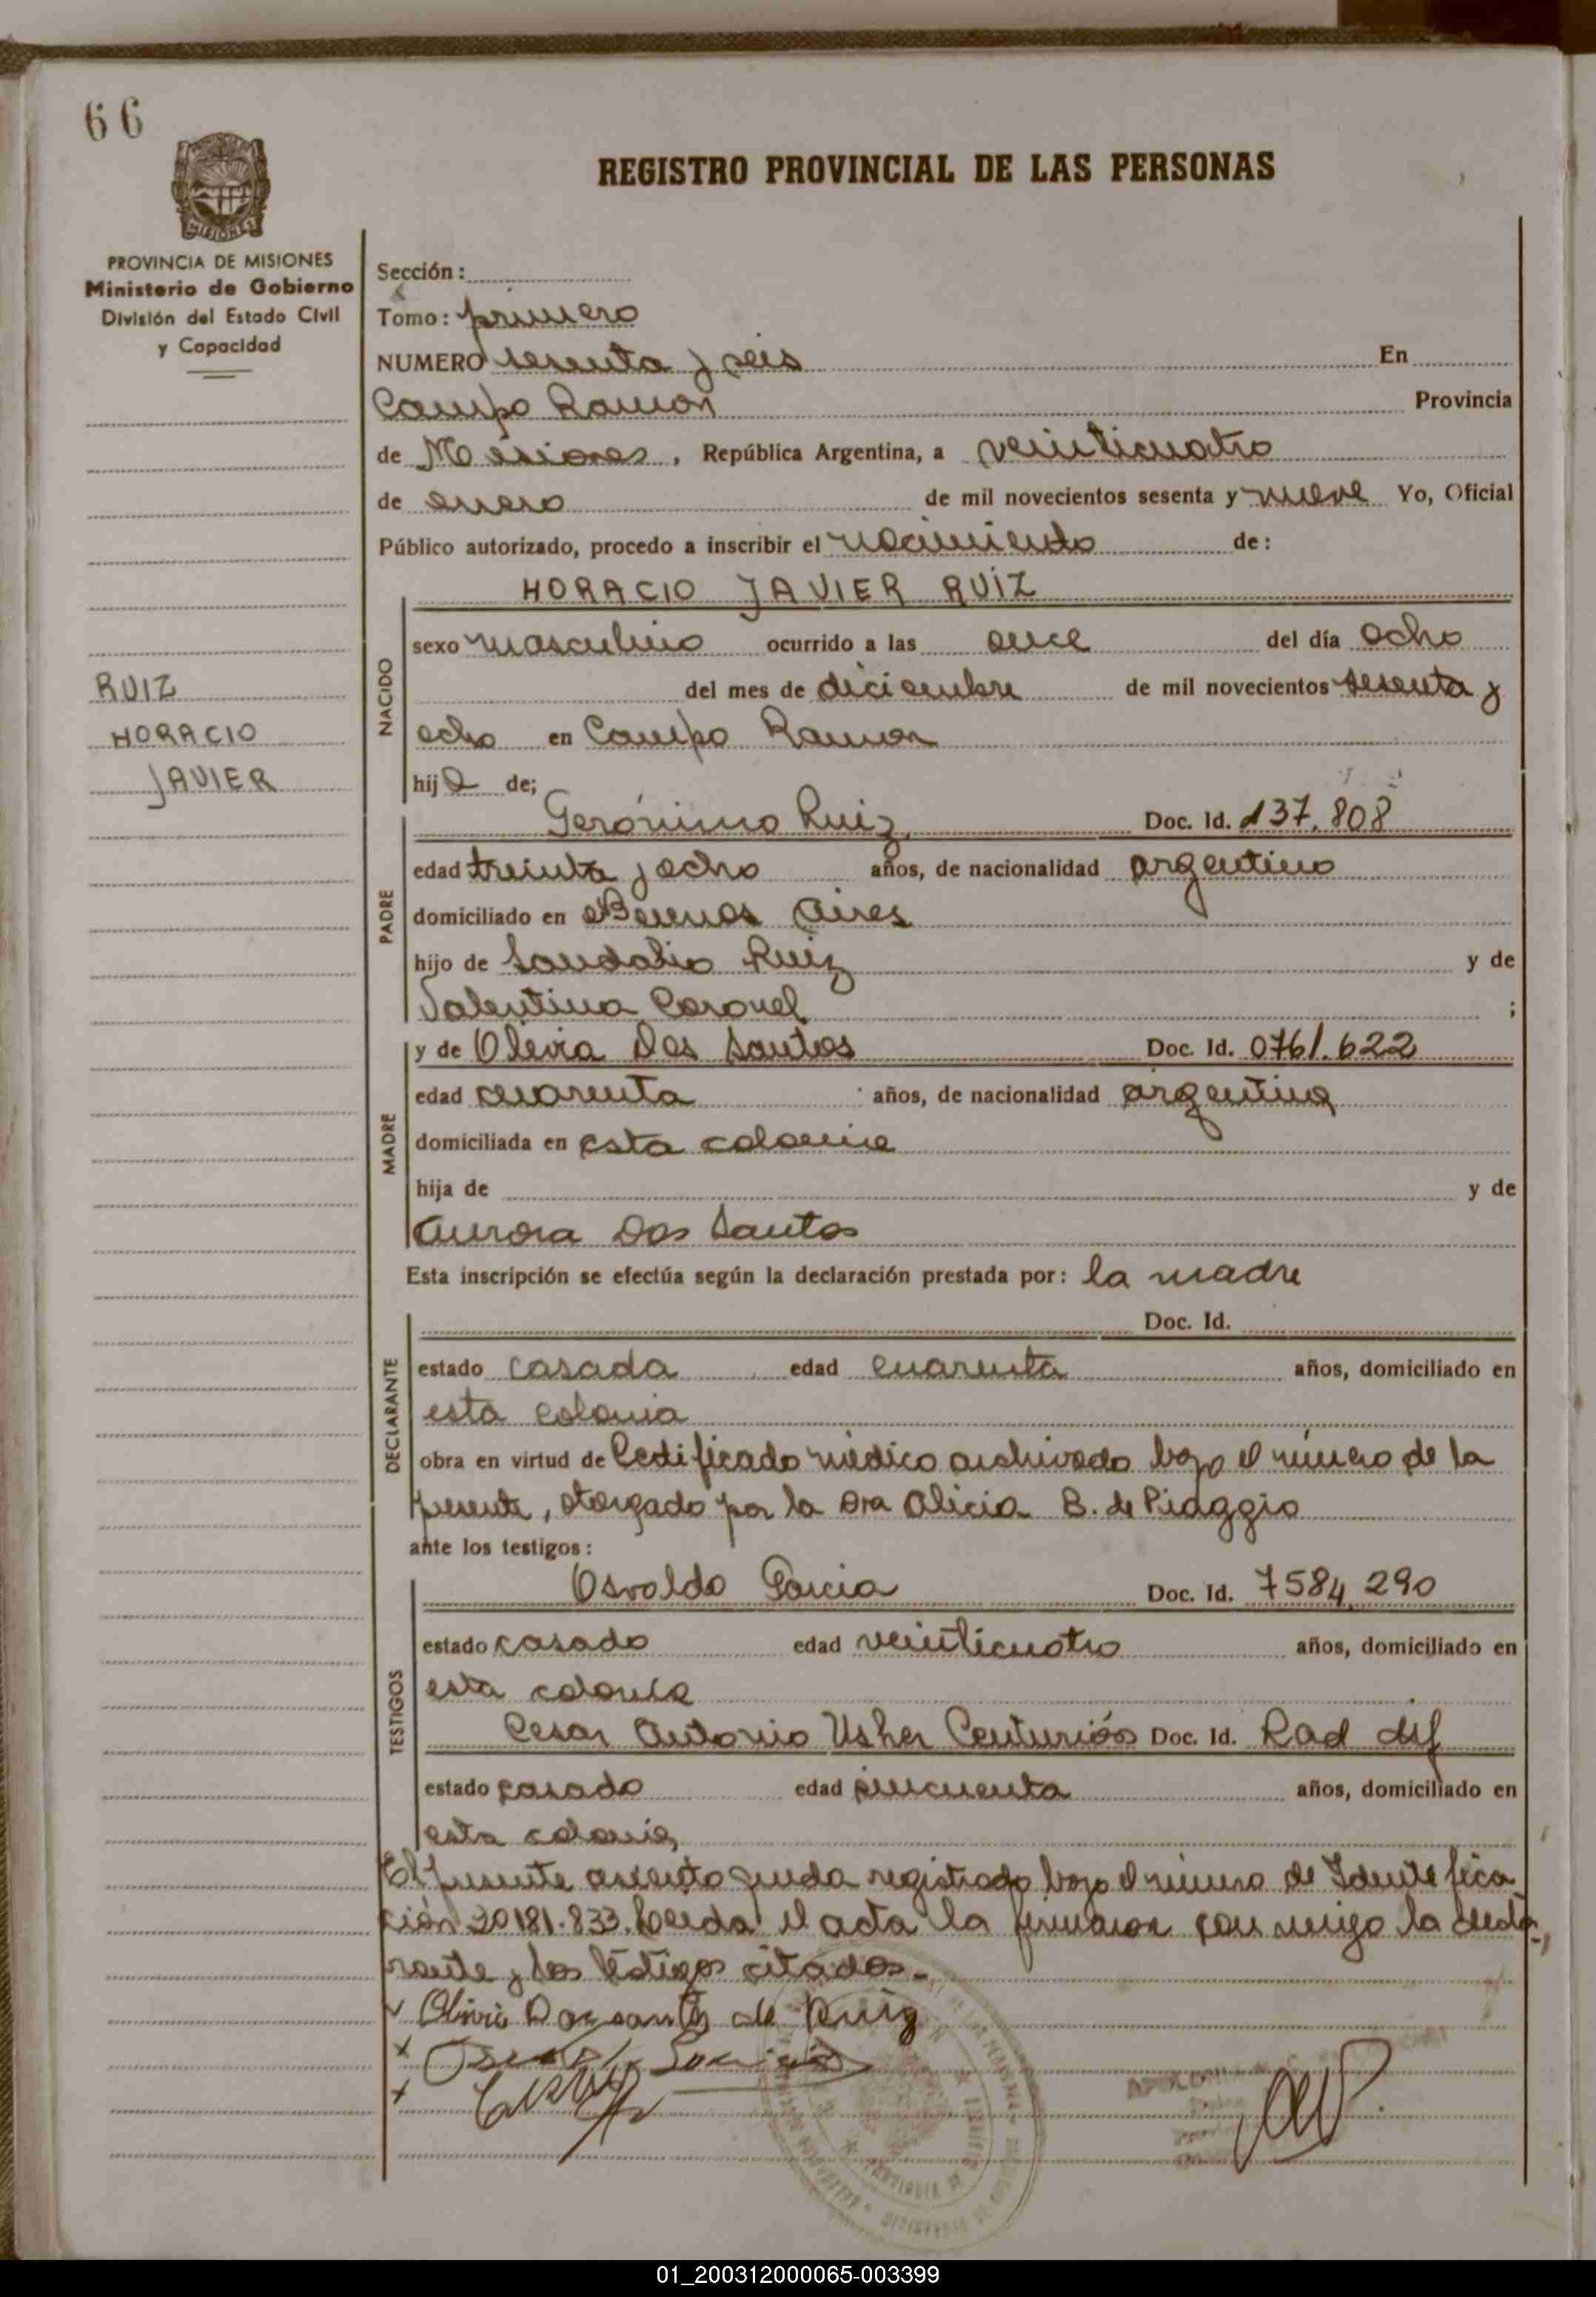 66
MISIONES
REGISTRO PROVINCIAL DE LAS PERSONAS
PROVINCIA DE MISIONES
Ministerio de Gobierno
División del Estado Civil
y Capacidad
RUIZ
HORACIO
JAVIER
Sección:
Tomo: primero
NUMERO sesenta y seis En
Campo Ramon Provincia
de Misiones, República Argentina, a veinticuatro
de enero de mil novecientos sesenta y nueve Yo, Oficial
Público autorizado, procedo a inscribir el nacimiento de:
HORACIO JAVIER RUIZ
NACIDO
sexo masculino ocurrido a las once del día ocho
del mes de diciembre de mil novecientos sesenta y
ocho en Campo Ramon
hijo de;
PADRE
Gerónimo Ruiz Doc. Id. 137.808
edad treinta y ocho años, de nacionalidad argentino
domiciliado en Buenos Aires
hijo de Sandalio Ruiz y de
Valentina Coronel ;
MADRE
y de Olivia Dos Santos Doc. Id. 0761.622
edad cuarenta años, de nacionalidad argentina
domiciliada en esta colonia
hija de y de
Aurora Dos Santos
Esta inscripción se efectúa según la declaración prestada por: la madre
DECLARANTE
Doc. Id.
estado casada edad cuarenta años, domiciliado en
esta colonia
obra en virtud de Certificado médico archivado bajo el número de la
presente, otorgado por la Dra Alicia B. de Piaggio
ante los testigos:
TESTIGOS
Osvaldo Garcia Doc. Id. 7584.290
estado casado edad veinticuatro años, domiciliado en
esta colonia
Cesar Antonio Usher Centurión Doc. Id. Rad dif
estado casado edad cincuenta años, domiciliado en
esta colonia
El presente asiento queda registrado bajo el número de Identifica
ción 20181.833. Leida el acta la firmaron con migo la decla-
rante y los testigos citados.-
Olivia Dos santos de Ruiz
01_200312000065-003399